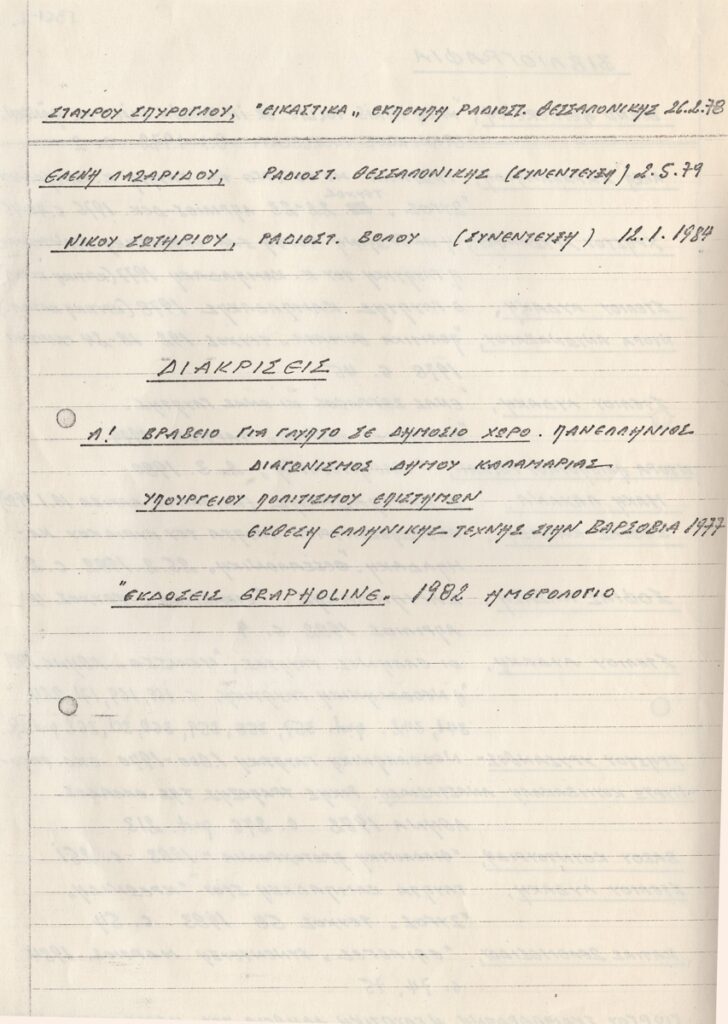 ΣΤΑΥΡΟΥ ΣΠΥΡΟΓΛΟΥ, "ΕΙΚΑΣΤΙΚΑ,, ΕΚΠΟΜΠΗ ΡΑΔΙΟΣΤ. ΘΕΣΣΑΛΟΝΙΚΗΣ 26.2.78
ΕΛΕΝΗ ΛΑΖΑΡΙΔΟΥ, ΡΑΔΙΟΣΤ. ΘΕΣΣΑΛΟΝΙΚΗΣ (ΣΥΝΕΝΤΕΥΞΗ) 2.5.79
ΝΙΚΟΥ ΣΩΤΗΡΙΟΥ, ΡΑΔΙΟΣΤ. ΒΟΛΟΥ (ΣΥΝΕΝΤΕΥΞΗ) 12.1.1984
ΔΙΑΚΡΙΣΕΙΣ
Α! ΒΡΑΒΕΙΟ ΓΙΑ ΓΛΥΠΤΟ ΣΕ ΔΗΜΟΣΙΟ ΧΩΡΟ. ΠΑΝΕΛΛΗΝΙΟΣ
ΔΙΑΓΩΝΙΣΜΟΣ ΔΗΜΟΥ ΚΑΛΑΜΑΡΙΑΣ
ΥΠΟΥΡΓΕΙΟΥ ΠΟΛΙΤΙΣΜΟΥ ΕΠΙΣΤΗΜΩΝ
ΕΚΘΕΣΗ ΕΛΛΗΝΙΚΗΣ ΤΕΧΝΗΣ ΣΤΗΝ ΒΑΡΣΟΒΙΑ 1977
"ΕΚΔΟΣΕΙΣ GRAPHOLINE. 1982 ΗΜΕΡΟΛΟΓΙΟ